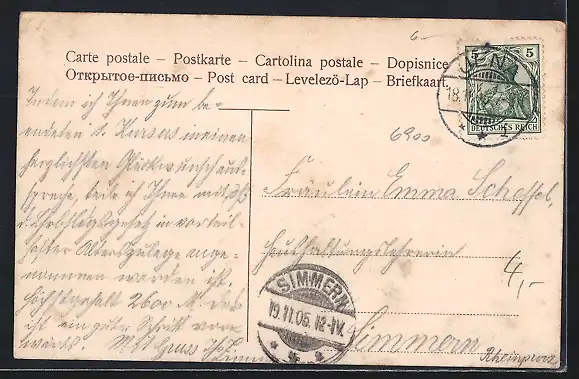 6.-
Carte postale – Postkarte – Cartolina postale – Dopisnice
Открытое-письмо – Post card – Levelező-Lap – Briefkaart.
5 5
DEUTSCHES REICH
18.
6900
Indem ich Ihnen zum be-
endeten 1. Kursus meinen
herzlichsten Glückwunsch aus-
spreche, teile ich Ihnen mit, daß
d. in vorteil-
hafter Alterszulage ange-
nommen worden ist.
Höchstgehalt 2600 M. Das
ist ein guter Schritt vor-
wärts. Mit Gruss
Fräulein Emma Scheffel,
Haushaltungslehrerin
4,-
Simmern
Rheinprov.
SIMMERN
19.11.06. 12-1V.